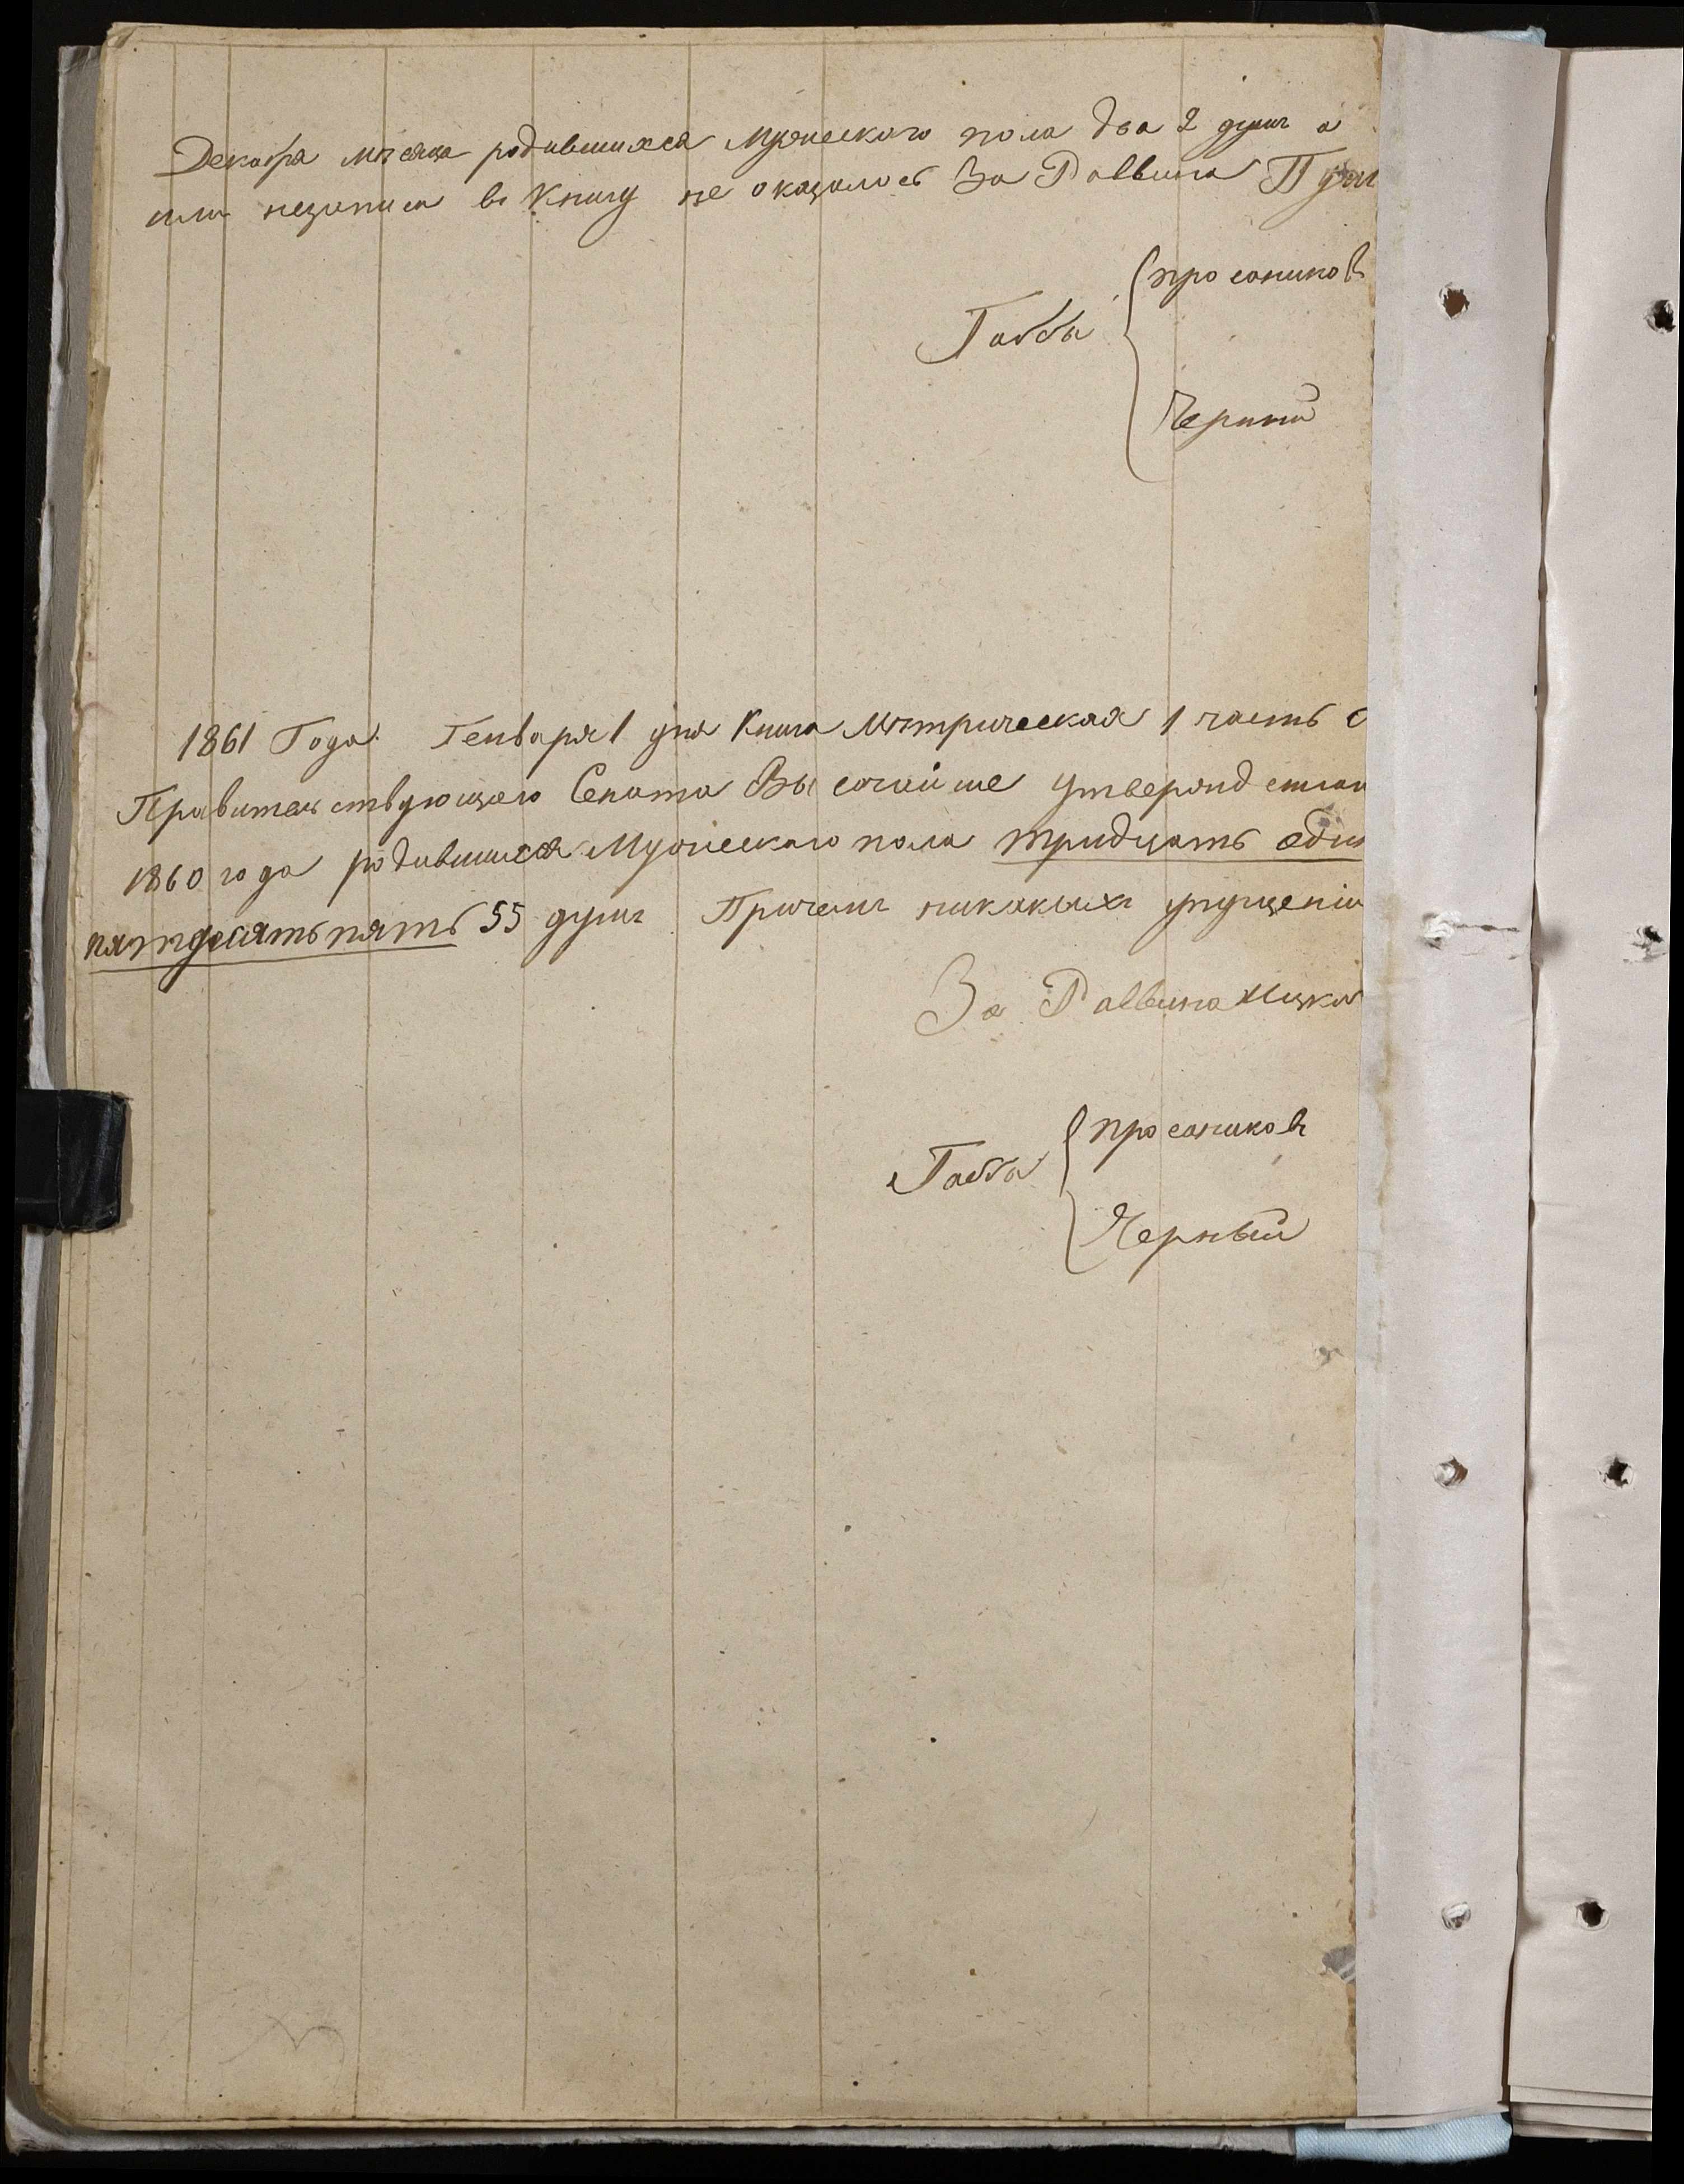 Декабря мѣсяца родившихся Мужескаго пола два 2 душъ а
или незаписа въ Книгу не оказалось За Раввина
Габбы
Просяников
Черный
1861 Года Генваря 1 дня Книга Мѣтрическая 1 часть С
Правительствующаго Сената Высочайше утвержд
1860 года родившихся Мужескаго пола тридцать один
пятдесятьпять 55 душъ Причемъ никакихъ упущеніи
За Раввина Ицко
Габбы
Просяниковъ
Черный